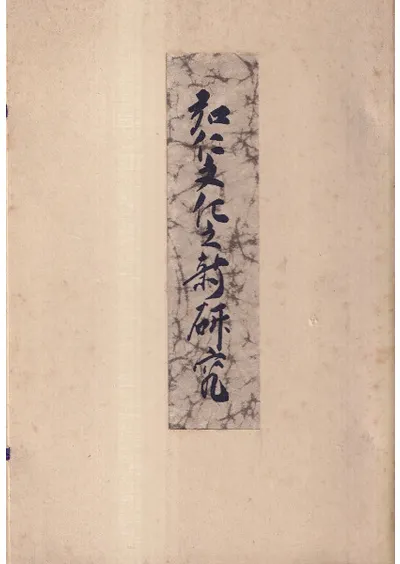 弘仁文化之新研究